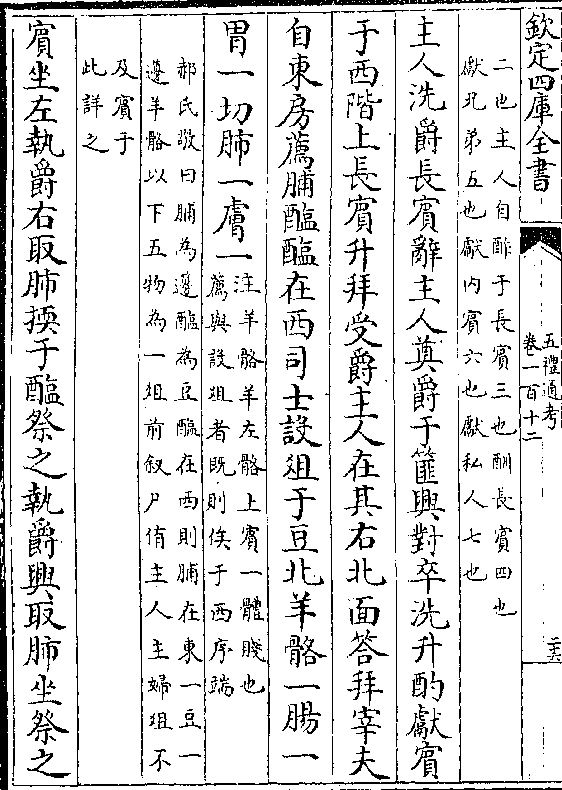 欽定四庫全書
五禮通考
卷一百十二
二六
二也主人自酢于長賓三也酬長賓四也
獻兄弟五也獻内賓六也獻私人七也
主人洗爵長賓辭主人奠爵于篚興對卒洗升酌獻賓
于西階上長賓升拜受爵主人在其右北面答拜宰夫
自東房薦脯醢醢在西司士設俎于豆北羊骼一腸一
胃一切肺一膚一
注羊骼羊左骼上賓一體賤也
薦與設俎者既則俟于西序端
郝氏敬曰脯為邊醢為豆醢在西則脯在東一豆一
邊羊骼以下五物為一俎前叙尸侑主人主婦俎不
及賓于
此詳之
賓坐左執爵右取肺㨎于醢祭之執爵興取肺坐祭之